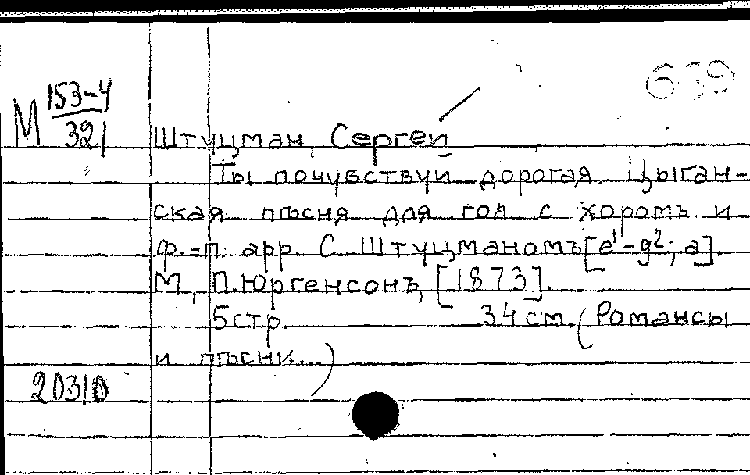 639
М 153-4
321
Штуцман, Сергей
Ты почувствуй дорогая. Цыган-
ская пѣсня для гол с хоромъ и
ф.=п. арр. С. Штуцманомъ [e¹-g²; a].
М., П. Юргенсонъ, [1873].
5 стр. 34 см. (Романсы
и пѣсни.)
20310